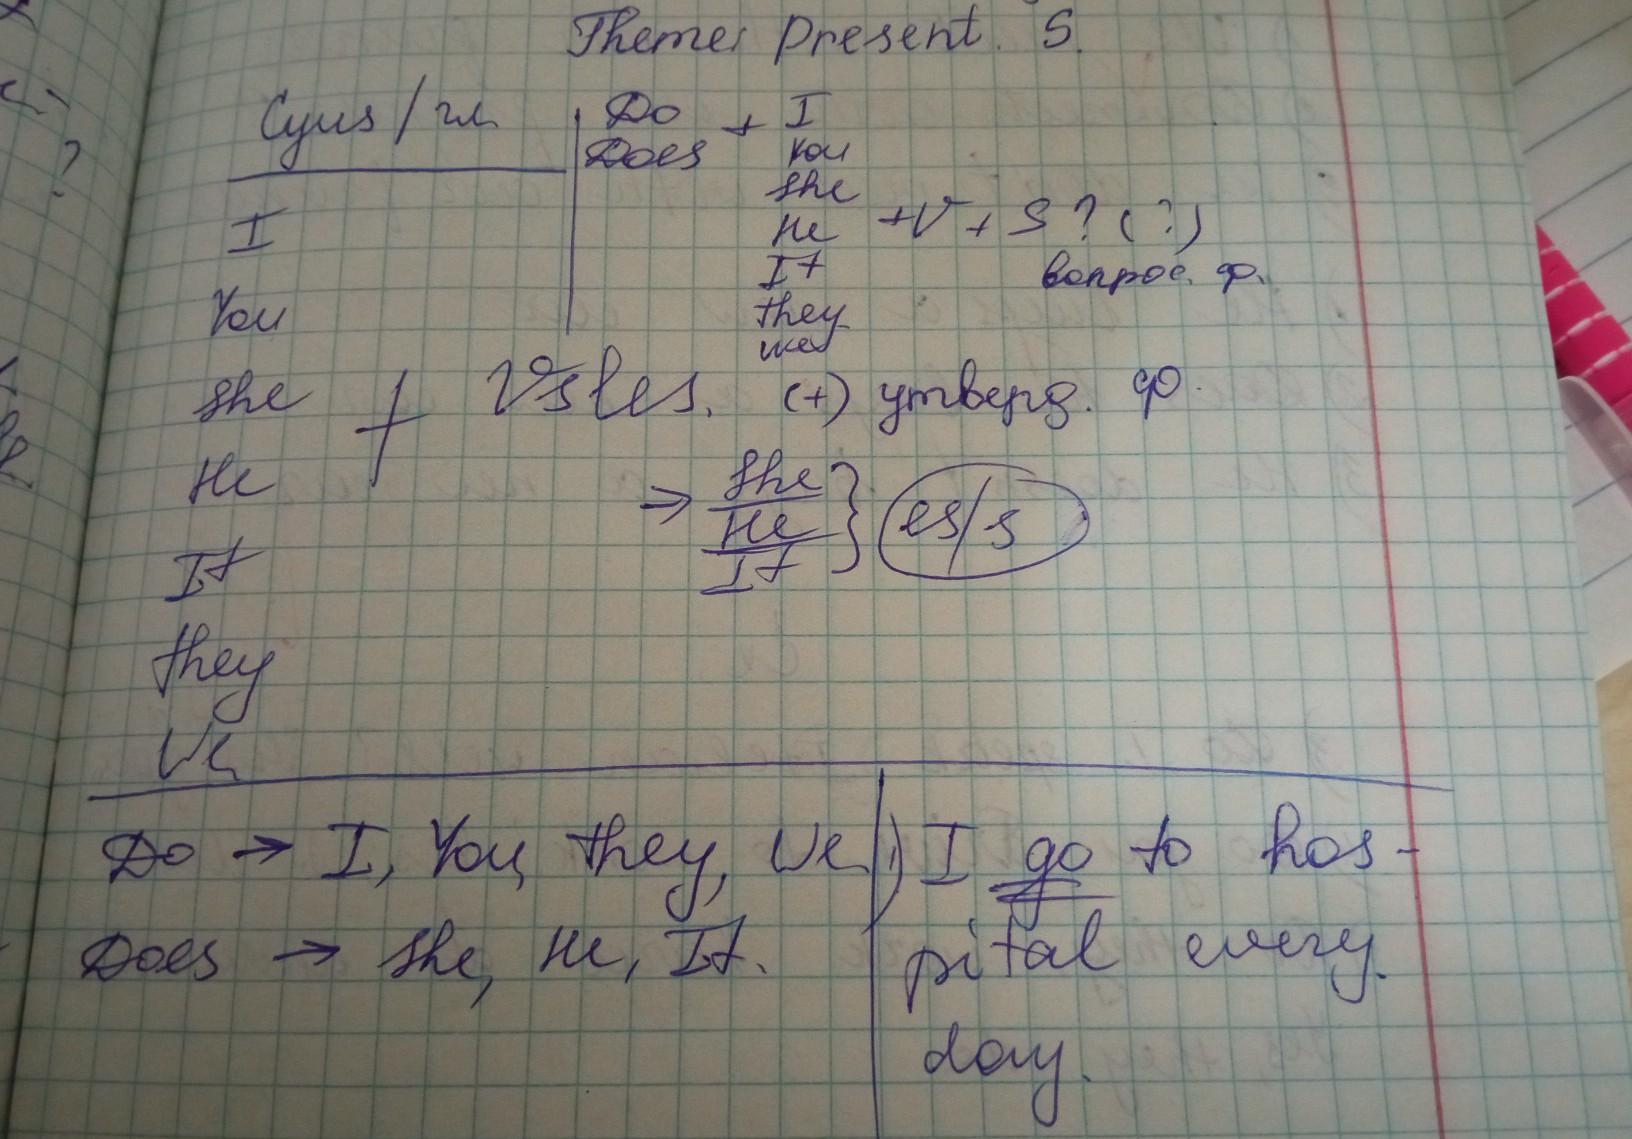 Theme: Present. S.
Сущ / гл.
Do
Does
+ I
You
She
He
It
they
we
+ V + S ? (?)
вопрос. ф.
I
You
She
He
It
they
We
+ Vs/es. (+) утверд. ф.
⇒ She
He
It
} es/s
Do → I, You, they, We
Does → She, He, It.
1) I go to hos-
pital every.
day.